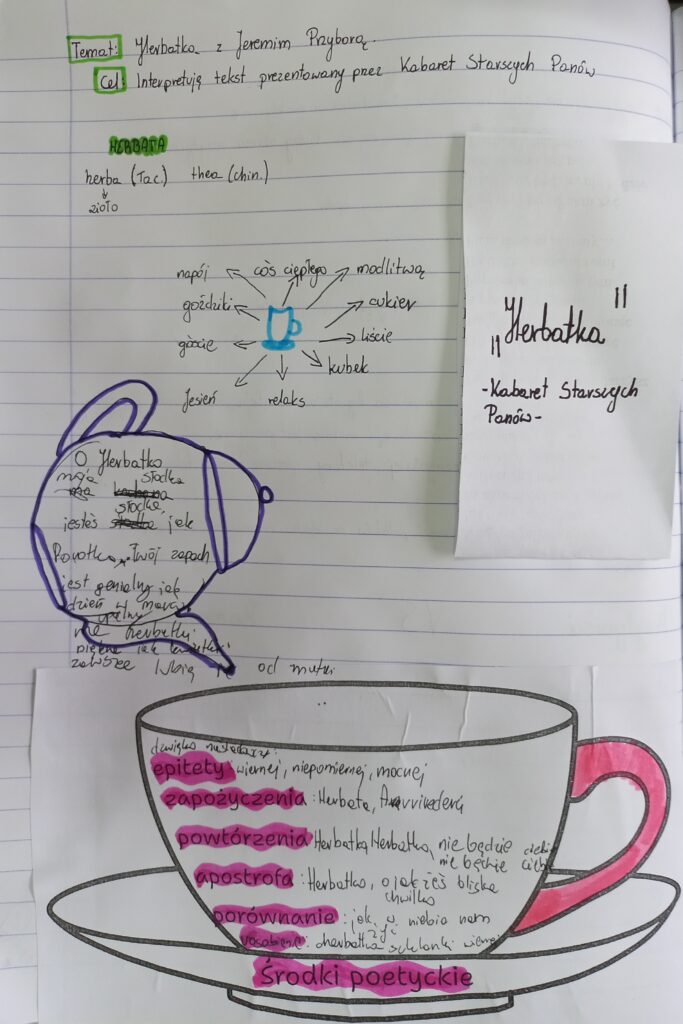 Temat: Herbatka z Jeremim Przyborą.
Cel: Interpretują tekst prezentowany przez Kabaret Starszych Panów
HERBATA
herba (łac.) thea (chin.)
zioło
napój
coś ciepłego
modlitwą
goździki
cukier
goście
liście
kubek
Jesień
relaks
„Herbatka"
-Kabaret Starszych
Panów-
O Herbatko
moja słodka
słodka
jesteś jak
Twój zapach
jest genialny jak
dzień
upalny
herbatki
piękne jak
zawsze od
epitety: wiernej, niepomiernej, mocnej
zapożyczenia: Herbata,
powtórzenia Herbatką Herbatką, nie będzie ciebie
nie będzie ciebie
apostrofa: Herbatko, o jakżeś bliska
chwilko
porównanie: jak u niebia nam
żyć
szklanki wiernej
Środki poetyckie